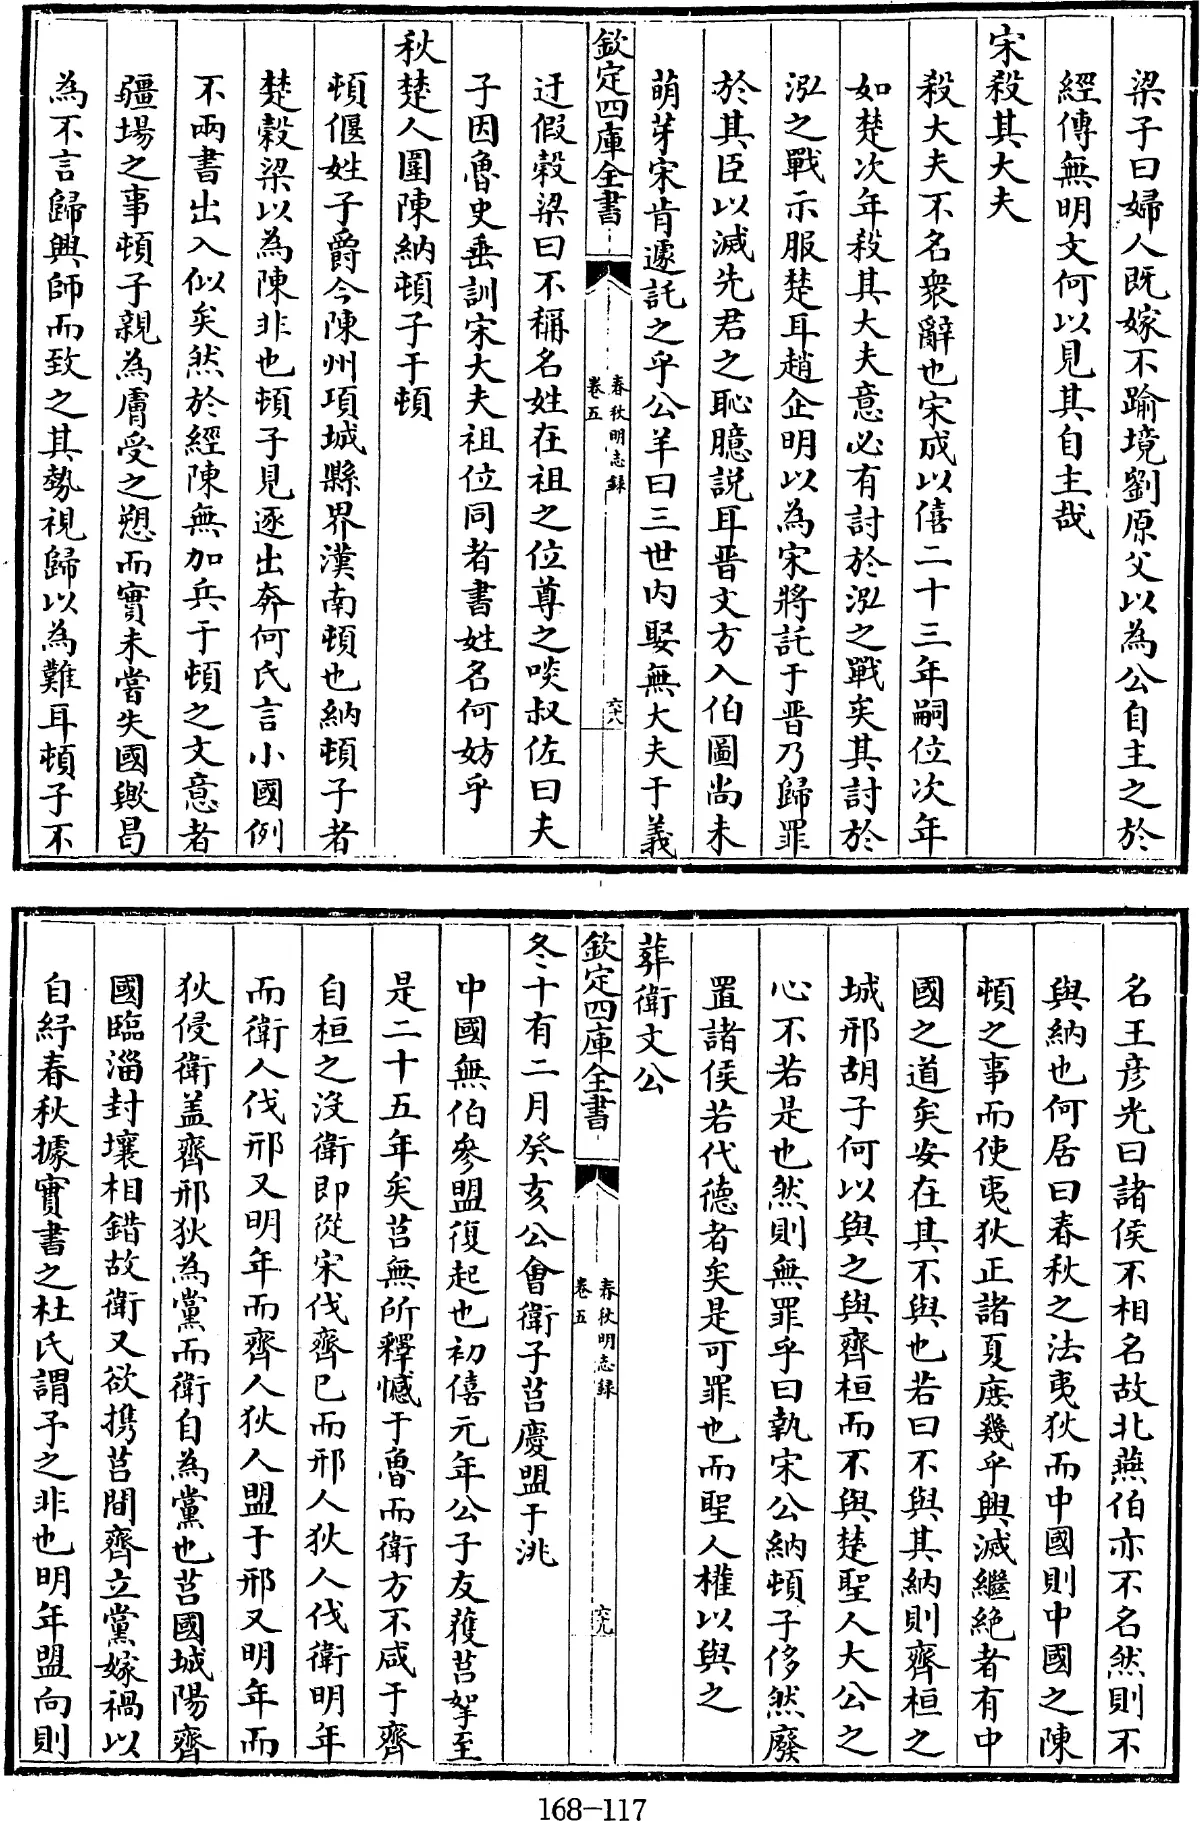 梁子曰婦人既嫁不踰境劉原父以為公自主之於
經傳無明文何以見其自主哉
宋殺其大夫
殺大夫不名衆辭也宋成以僖二十三年嗣位次年
如楚次年殺其大夫意必有討於泓之戰矣其討於
泓之戰示服楚耳趙企明以為宋將託于晋乃歸罪
於其臣以滅先君之恥臆説耳晋文方入伯圖尚未
萌芽宋肯遽託之乎公羊曰三世内娶無大夫于義
欽定四庫全書
春秋明志録
卷五
六十八
迂假榖梁曰不稱名姓在祖之位尊之啖叔佐曰夫
子因魯史垂訓宋大夫祖位同者書姓名何妨乎
秋楚人圍陳納頓子于頓
頓偃姓子爵今陳州項城縣界漢南頓也納頓子者
楚榖梁以為陳非也頓子見逐出奔何氏言小國例
不兩書出入似矣然於經陳無加兵于頓之文意者
疆場之事頓子親為膚受之愬而實未嘗失國歟曷
為不言歸興師而致之其勢視歸以為難耳頓子不
名王彦光曰諸侯不相名故北燕伯亦不名然則不
與納也何居曰春秋之法夷狄而中國則中國之陳
頓之事而使夷狄正諸夏庶幾乎興滅繼絶者有中
國之道矣安在其不與也若曰不與其納則齊桓之
城邢胡子何以與之與齊桓而不與楚聖人大公之
心不若是也然則無罪乎曰執宋公納頓子侈然廢
置諸侯若代德者矣是可罪也而聖人權以與之
葬衛文公
欽定四庫全書
春秋明志録
卷五
六十九
冬十有二月癸亥公會衛子莒慶盟于洮
中國無伯參盟復起也初僖元年公子友獲莒挐至
是二十五年矣莒無所釋憾于魯而衛方不咸于齊
自桓之没衛即從宋伐齊已而邢人狄人伐衛明年
而衛人伐邢又明年而齊人狄人盟于邢又明年而
狄侵衛盖齊邢狄為黨而衛自為黨也莒國城陽齊
國臨淄封壤相錯故衛又欲携莒間齊立黨嫁禍以
自紓春秋據實書之杜氏謂予之非也明年盟向則
168-117